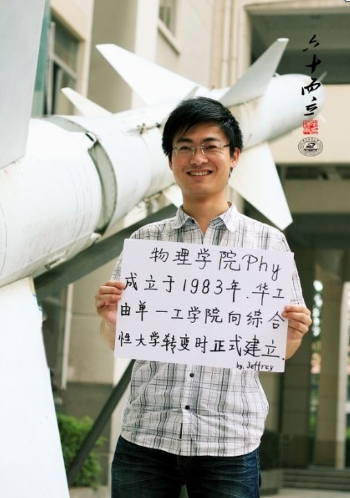 六十而立
物理学院Phy
成立于1983年.华工
由单一工学院向综合
恒大学转变时正式建立.
by. Jeffray